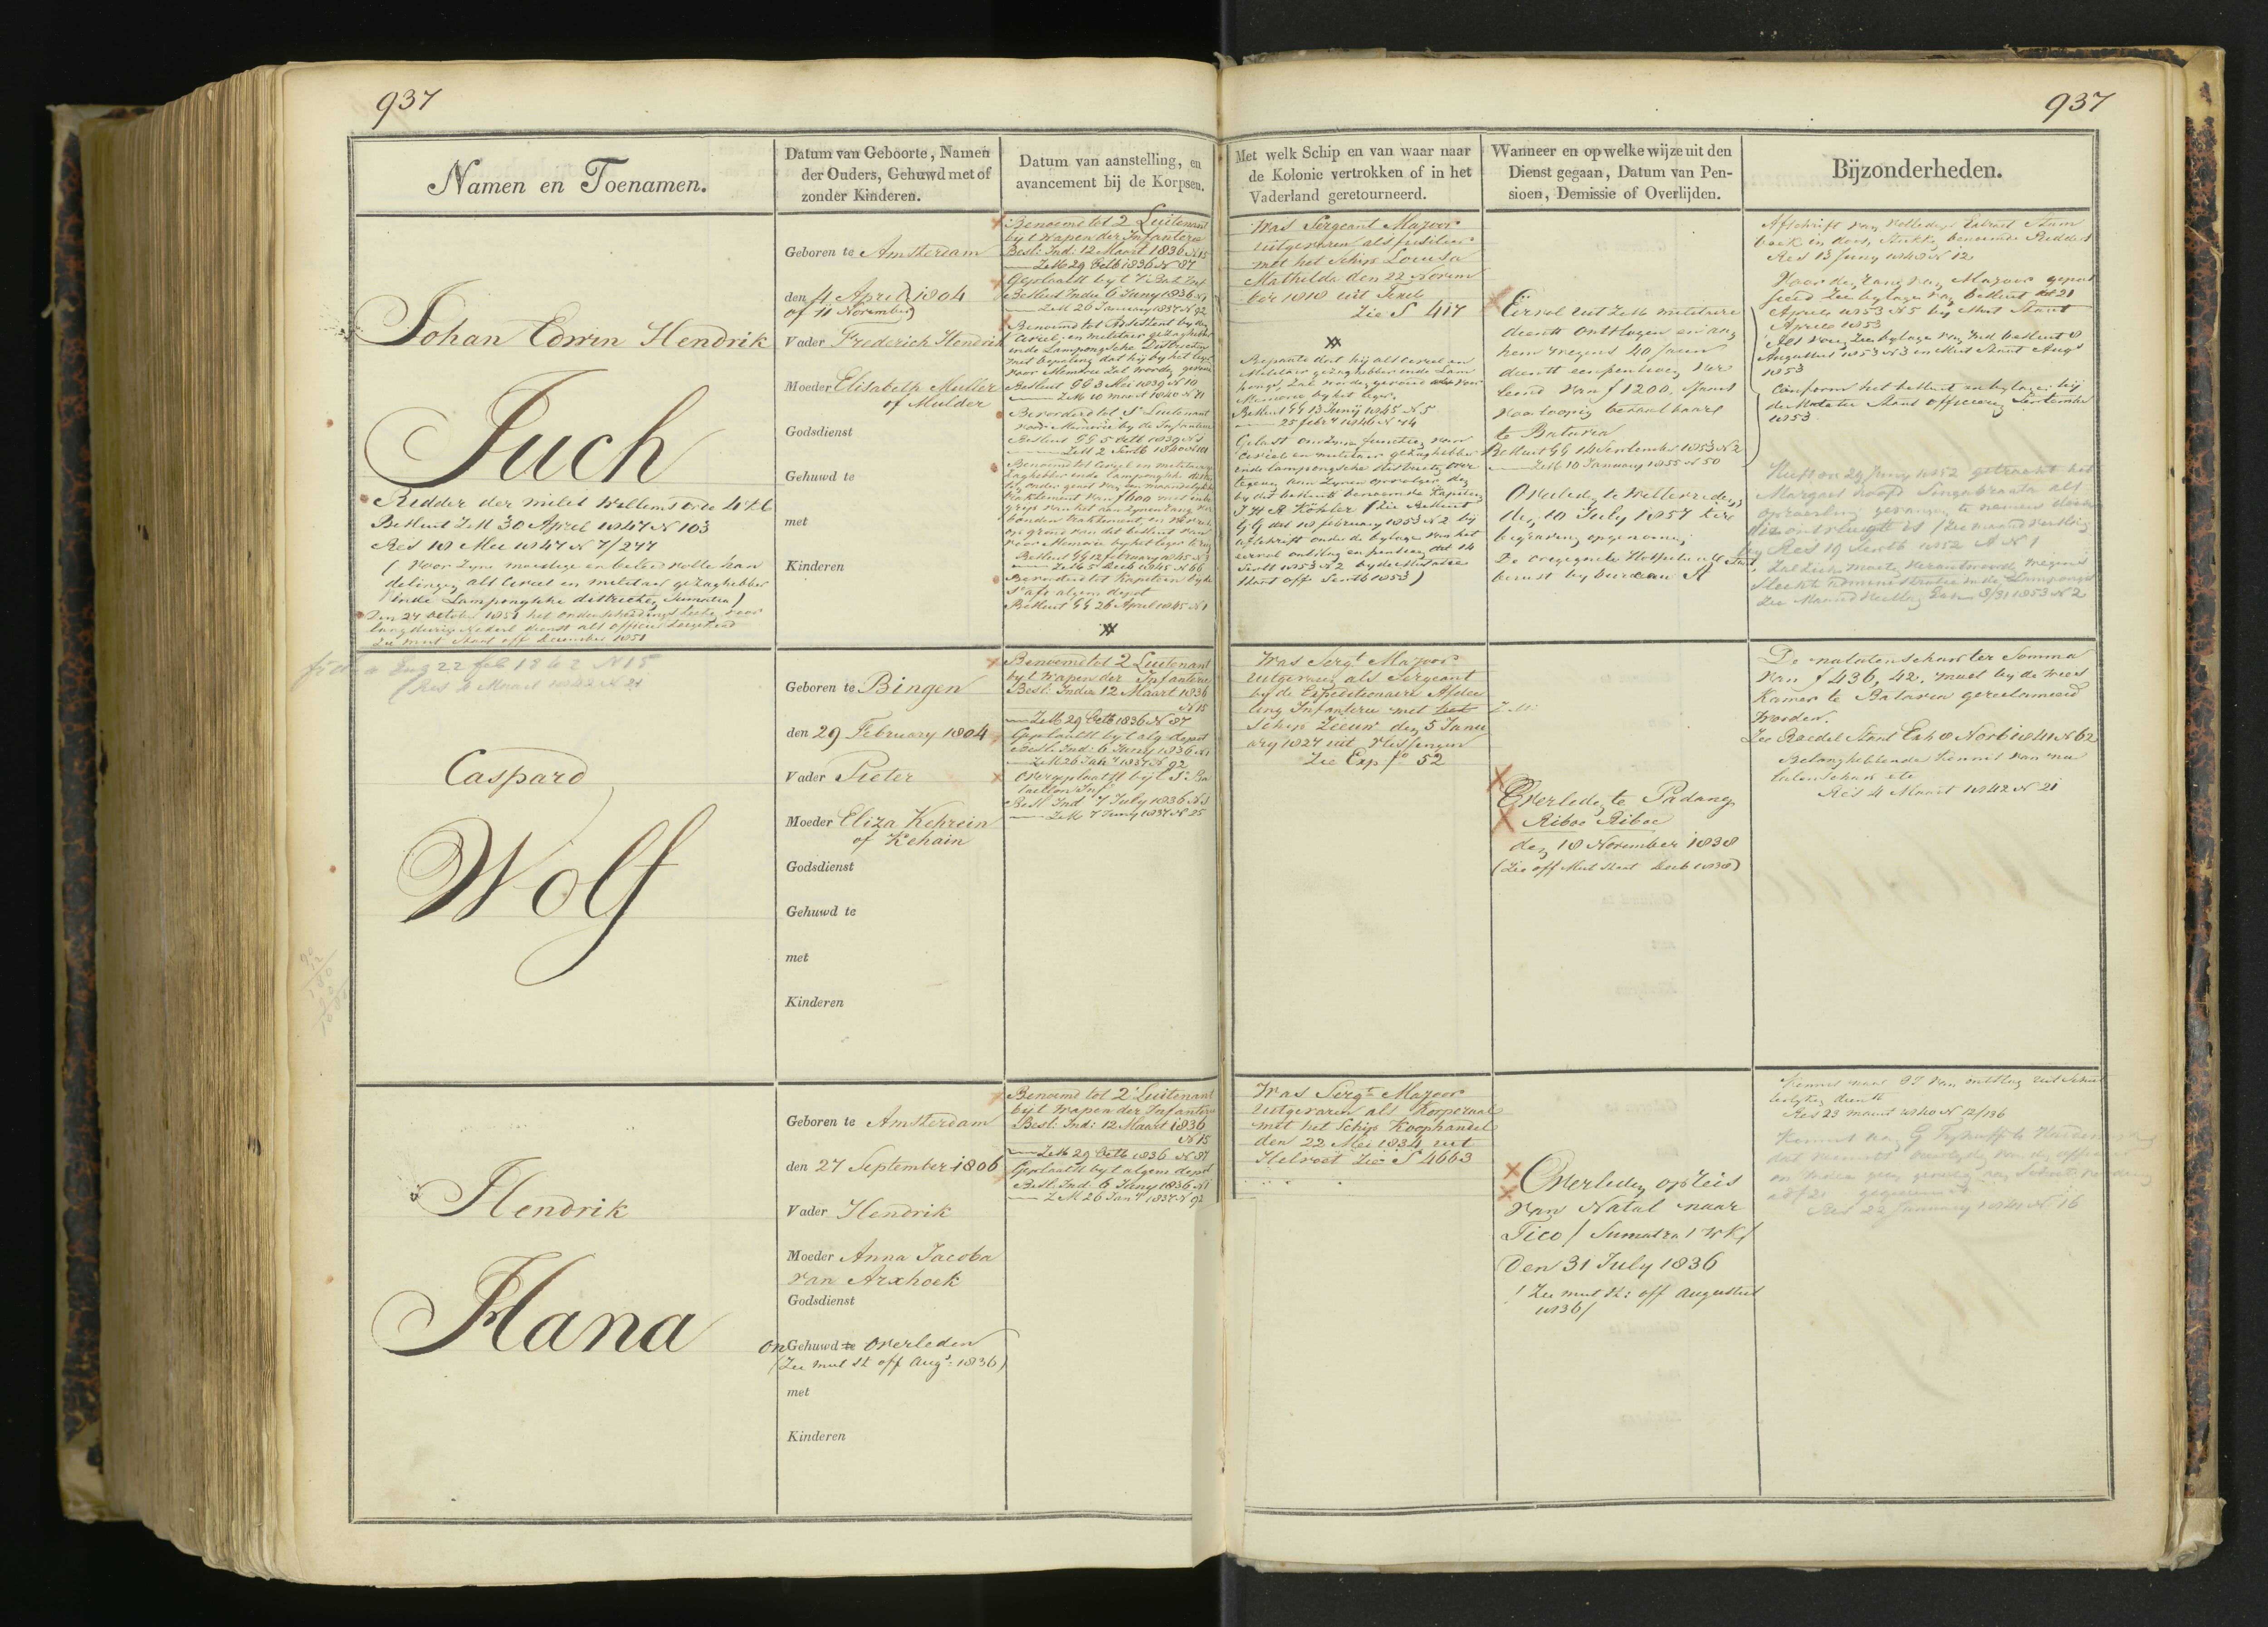 937
937
Namen en Toenamen.
Datum van Geboorte, Namen
der Ouders, Gehuwd met of
zonder Kinderen.
Datum van aanstelling, en
avancement bij de Korpsen.
Met welk Schip en van waar naar
de Kolonie vertrokken of in het
Vaderland geretourneerd.
Wanneer en op welke wijze uit den
Dienst gegaan, Datum van Pen-
sioen, Demissie of Overlijden.
Bijzonderheden.
Johan Edwin Hendrik
Juch
Ridder der milit Willems orde 4e kl
Besluit ZM 30 April 1847 N 103
Res 18 Mei 1847 N 7/247
(voor zyne moedige en beleidvolle han
delingen als Civiel en militair gezaghebber
in de Lampongsche districten Sumatra)
Den 27 October 1851 het onderscheidings teeken voor
langdurige Nederl dienst als officier toegekend
Zie mut Staat off December 1851
Geboren te Amsterdam
den 4 April 1804
of 11 November
Vader Frederich Hendrik
Moeder Elisabeth Muller
of Mulder
Godsdienst
Gehuwd te
met
Kinderen
Benoemd tot 2 Luitenant
by t wapen der Infanterie
Besl: Ind: 12 Maart 1836 N 15
ZM 29 Octb 1836 N 87
Geplaatst by t 1e Bat Inf
Besluit Indie 6 Juny 1836 N 1
ZM 26 January 1837 N 92
Benoemd tot Adsistent by den
Civiel en militair gezaghebber
in de Lampongsche Districten
met bepaling dat hij by het leger
voor Memorie zal worden gevoerd
Besluit GG 3 Mei 1839 N 10
ZM 10 maart 1840 N 71
Bevorderd tot 1e Luitenant
voor Memorie by de Infanterie
Besluit GG 5 Octb 1839 N 3
ZM 2 Septb 1840 N 101
Benoemd tot Civiel en militair ge
zaghebber in de Lampongsche distric
ten onder genot van een maandelyksch
traktement van f 600 met inbe
grip van het aan zynen rang ver
bonden traktement, en
op grond van dit besluit van
voor Memorie by het leger
Besluit GG 12 february 1845 N 3
ZM 5 Decb 1845 N 66
Bevorderd tot Kapitein by de
Staf algem depot
Besluit GG 26 April 1845 N 1
Was Sergeant Majoor
uitgevaren als fusilier
met het Schip Louisa
Mathilda den 22 Novem
ber 1818 uit Texel
Zie S 417
Bepaald dat hij als Civiel en
Militair gezaghebber in de Lam
pongs, zal worden gevoerd voor
Memorie by het leger.
Besluit GG 13 Juny 1845 N 5
25 febry 1846 N 14
Gelast om zyne functien van
Civiel en militair gezaghebber
in de Lampongsche districten over
te geven aan zynen opvolger den
by dit besluit benoemde Kapitein
J H R Köhler (zie Besluit
GG dat 18 february 1853 N 2 bij
afschrift onder de bylagen van het
eervol ontslag en pensioen dat 14
Septb 1853 N 2 by de Mutatie
Staat off Septb 1853)
Eervol uit ZM militaire
dienst ontslagen en aan
hem wegens 40 jaren
dienst een pensioen ver
leend van f 1200. 's jaars
voorloopig betaalbaar
te Batavia
Besluit GG 14 September 1853 N 2
ZM 10 January 1855 N 50
Overleden te Weltevreden
den 10 July 1857 ter
begraving opgenomen;
De overgegane Hospitaals Staat
berust by bureau A
Afschrift van volledig Extract Stam
boek in dors. Stukken benoemde Ridders
Res 13 Juny 1848 N 12
Voor den rang van Majoor gepas
seerd zie bylage van besluit dat 21
April 1853 N 5 by Mut Staat
April 1853
Als voren zie bylage van Ind besluit 8
Augustus 1853 N 3 en Mut Staat Augs
1853
Conform het besluit en bylagen bij
de Mutatie Staat officieren September
1853
Heeft op 29 Juny 1852 getracht het
Margas hoofd Singabranta als
gevangen te nemen
die ontvlugt is
Res 19 Septb 1852
Res 4 Maart 1842 N 21
Caspard
Wolf
Geboren te Bingen
den 29 February 1804
Vader Pieter
Moeder Eliza Kehrein
of Kehain
Godsdienst
Gehuwd te
met
Kinderen
Benoemd tot 2 Luitenant
by t wapen der Infanterie
Besl: Indie 12 Maart 1836
N 15
ZM 29 Octb 1836 N 87
Geplaatst by t alg depot
Besl: Ind: 6 Juny 1836 N 1
ZM 26 Jany 1837 N 92
Overgeplaatst bij t 1e Ba
taillon Inf
Besl Ind 7 July 1836 N 3
ZM 7 Juny 1837 N 25
Was Sergt Majoor
uitgevaren als Sergeant
by de Expeditionaire Afdee
ling Infanterie met het
Schip Zeeuw den 5 Janu
ary 1827 uit Vlissingen
Zie Exp fo 52
Overleden te Padang
Riboe Riboe
den 18 November 1838
(Zie off Mut Staat Decb 1838)
De nalatenschap ter Somma
van f 436, 42. moet by de Wees
Kamer te Batavia gereclameerd
worden.
Zie Raedel Staat Exh 8 Novb 1841 N 62
Belanghebbende Kennis van na
latenschap etc
Res 4 Maart 1842 N 21
Hendrik
Hana
Geboren te Amsterdam
den 27 September 1806
Vader Hendrik
Moeder Anna Jacoba
van Arxhoek
Godsdienst
onGehuwd te overleden
(Zie mut St off Augs 1836)
met
Kinderen
Benoemd tot 2e Luitenant
bij t wapen der Infanterie
Besl: Ind: 12 Maart 1836
N 15
ZM 29 Octb 1836 N 87
Geplaatst by t algem depot
Besl: Ind: 6 Juny 1836 N 1
ZM 26 Jany 1837 N 92
Was Sergt Majoor
uitgevaren als Korporaal
met het Schip Koophandel
den 22 Mei 1834 uit
Helvoet zie S 4663
Overleden op reis
van Natal naar
Tico (Sumatra's WK)
Den 31 July 1836
(Zie mut St: off Augustus
1836)
Res 23 maart 1840 N 12/136
Res 22 January 1841 N 16